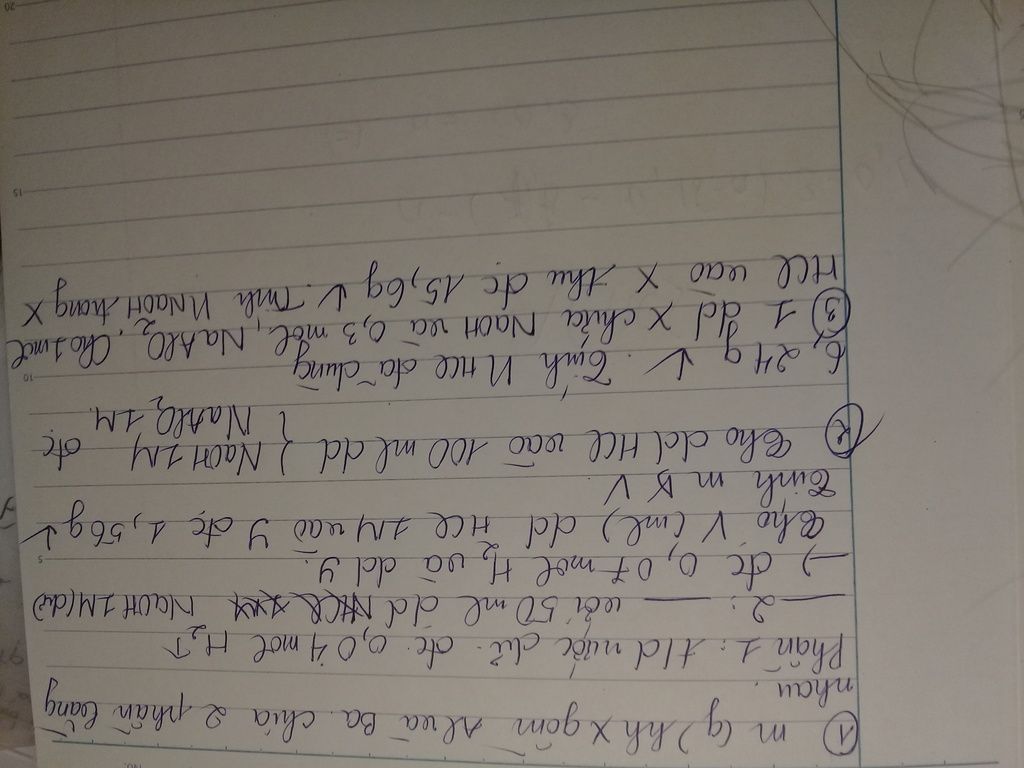 ① m (g) hh X gồm Al và Ba. chia 2 phần bằng
nhau.
Phần 1: t/d nước dư đc 0,04 mol H2↑
— 2: — với 50 ml dd NaOH 1M (dư)
→ đc 0,07 mol H2 và dd Y.
Cho V (ml) dd HCl 1M vào Y đc 1,56g ↓
Tính m & V.
② Cho dd HCl vào 100 ml dd { NaOH 1M đc
NaAlO2 1M
6,24 g ↓. Tính n HCl đã dùng
③ 1 dd X chứa NaOH và 0,3 mol NaAlO2. Cho 1 mol
HCl vào X thu đc 15,6g ↓. Tính nNaOH trong X
5
10
15
20